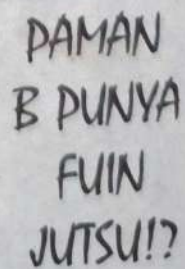 PAMAN
B PUNYA
FUIN
JUTSU!?